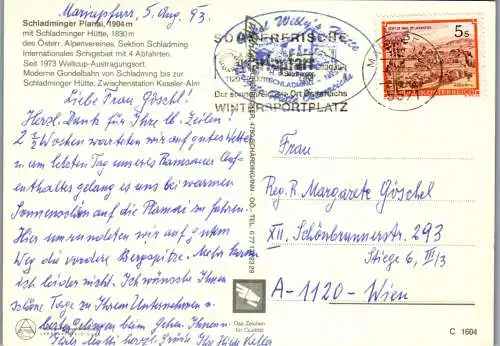 Schladminger Planai, 1904 m
mit Schladminger Hütte, 1830 m
des Österr. Alpenvereines, Sektion Schladming
Internationales Schigebiet mit 4 Abfahrten.
Seit 1973 Weltcup-Austragungsort.
Moderne Gondelbahn von Schladming bis zur
Schladminger Hütte, Zwischenstation Kessler-Alm
Mariapfarr, 5. Aug. 93.
Liebe Frau Göschl!
Herzl. Dank für Ihre lb. Zeilen!
2 ½ Wochen warteten wir auf gutes Wetter
u. am letzten Tag unseres Ramsauer Auf-
enthaltes gelang es uns bei warmen
Sonnenschein auf die Planai zu fahren
Hier umrundeten wir auf gutem
Weg die vordere Bergspitze. Mehr
ist leider nicht. Ich wünsche Ihnen
schöne Tage zu Ihrem Unternehmen u.
bestes Gelingen beim Gehen Ihnen u.
herzl. Grüße Ihre Hilde Keller
SÜD
WINTERSPORTPLATZ
SCHLADMING
5 s
REPUBLIK ÖSTERREICH
Frau
Reg. R. Margarete Göschel
XII. Schönbrunnerstr. 293
Stiege 6, III/3
A-1120-Wien
Das Zeichen
für Qualität
C 1604